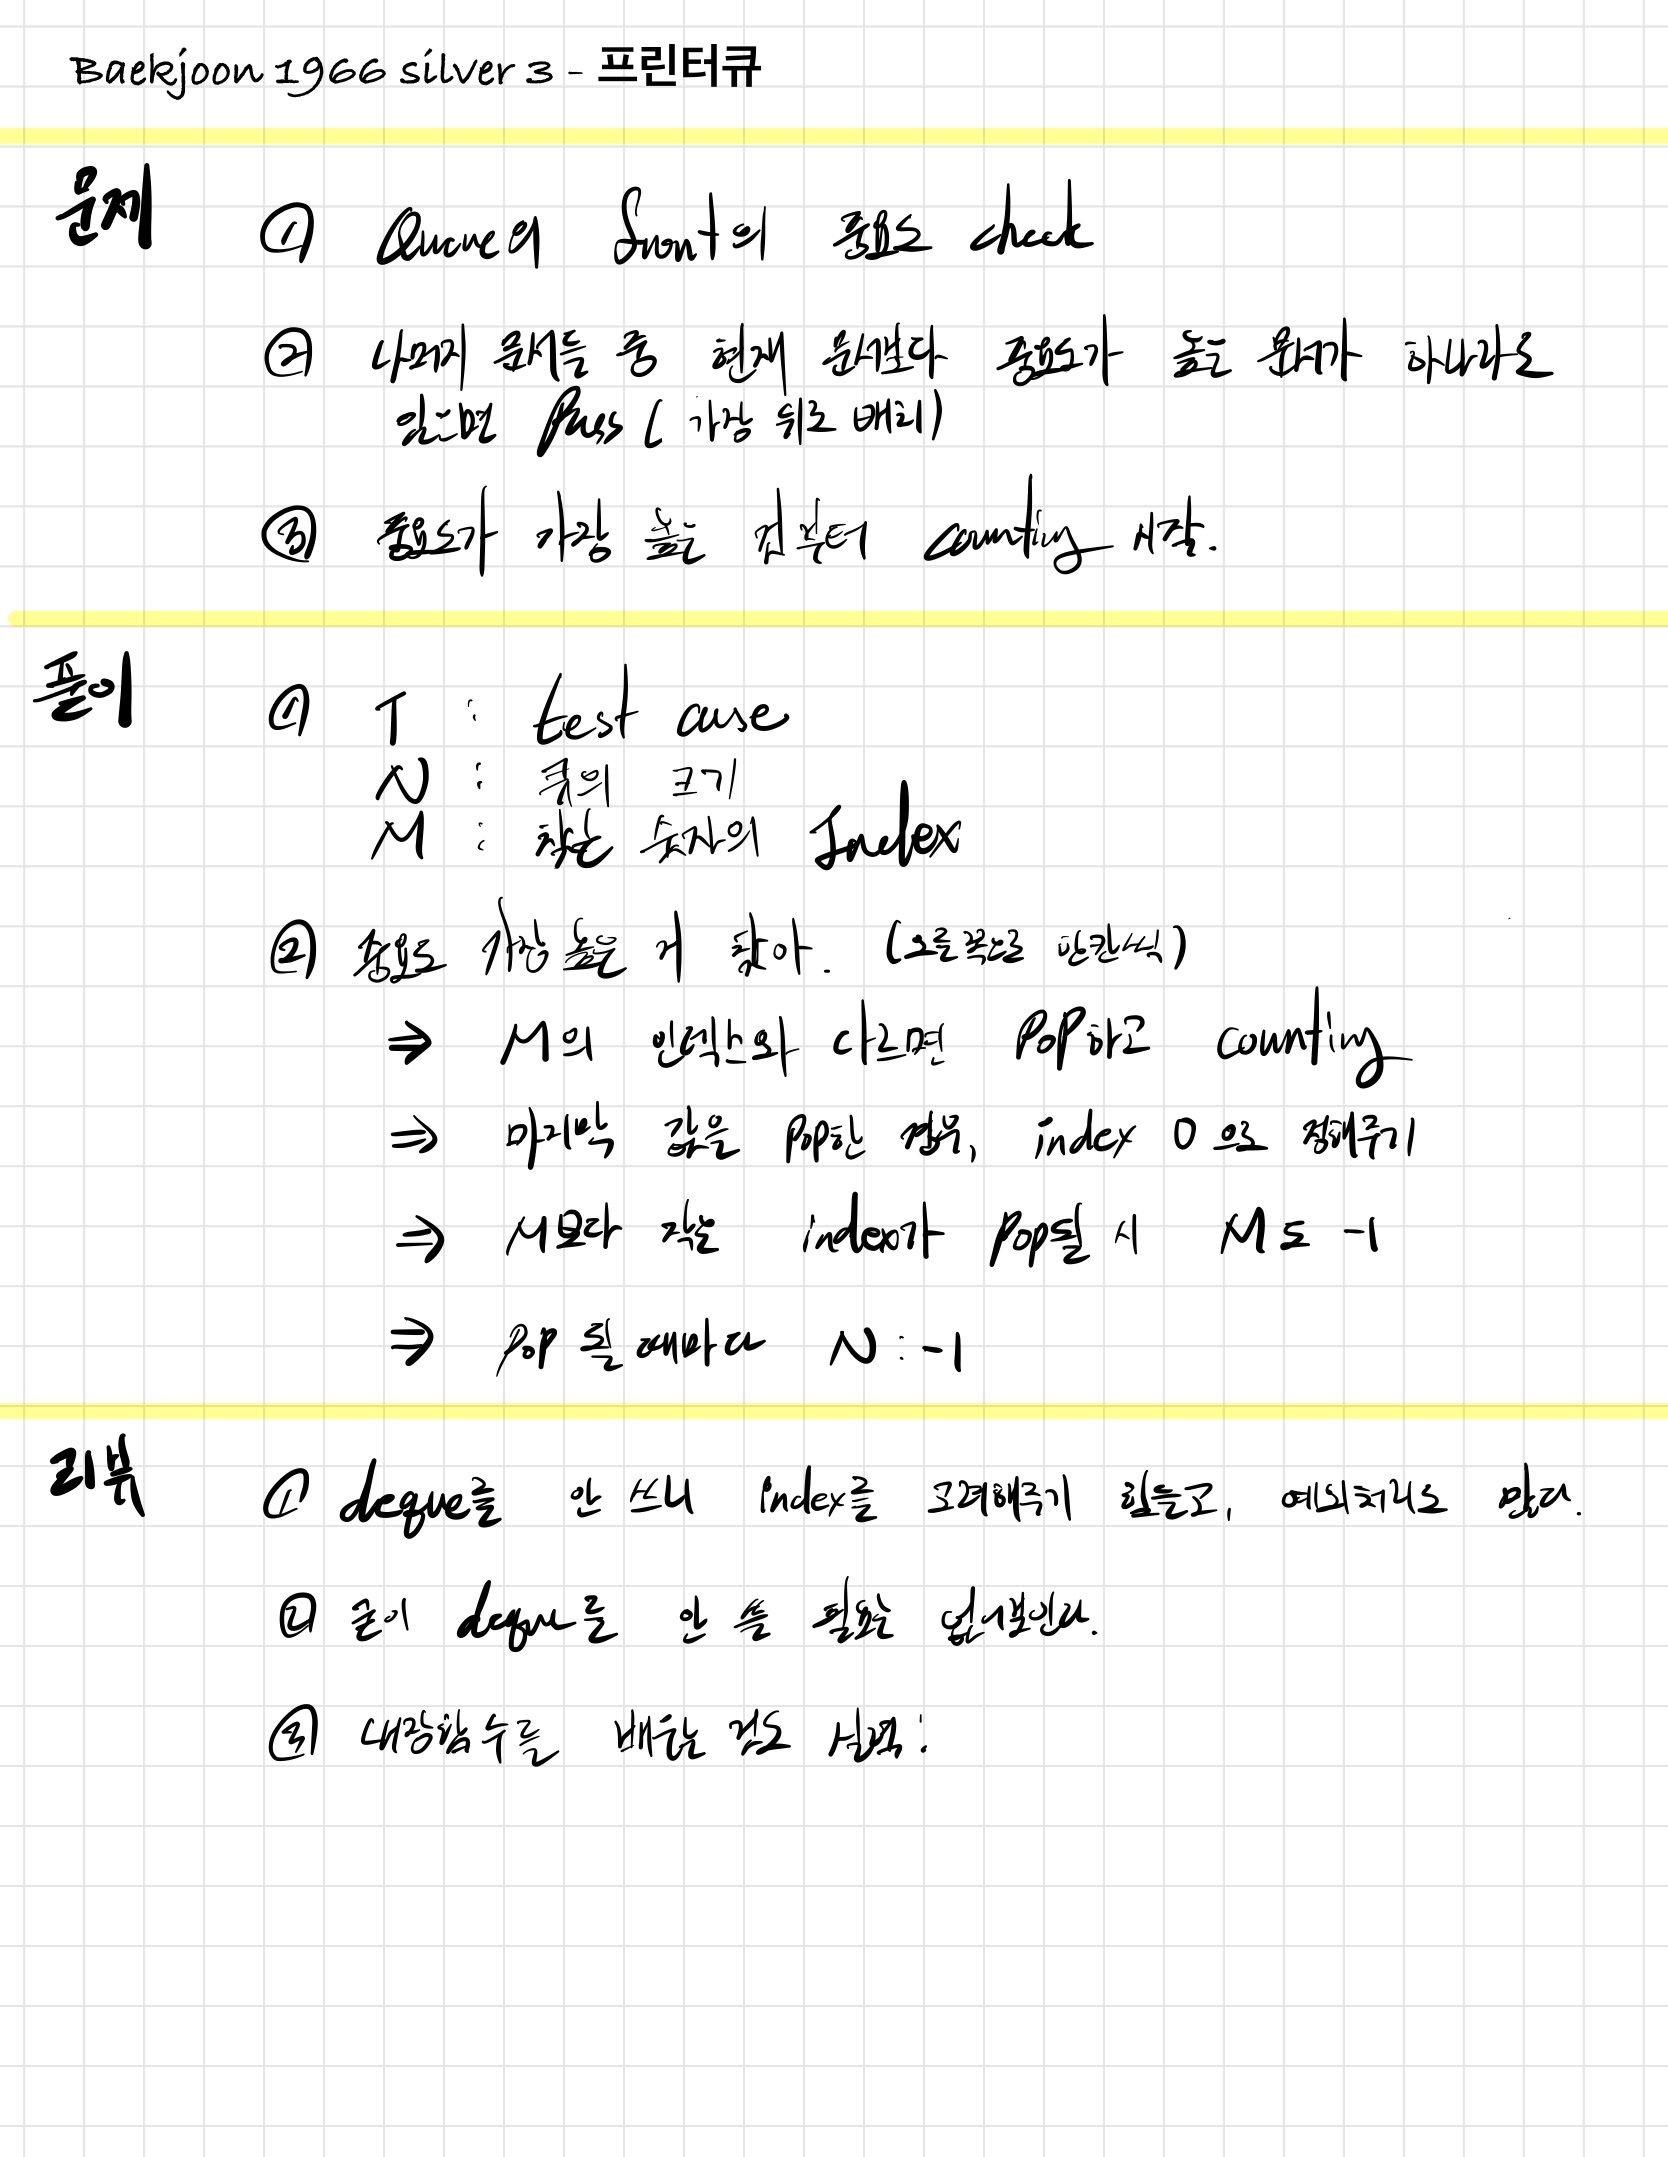 Baekjoon 1966 silver 3 - 프린터큐
문제
① Queue의 front의 중요도 check
② 나머지 문서들 중 현재 문서보다 중요도가 높은 문서가 하나라도
있으면 Pass ( 가장 뒤로 배치)
③ 중요도가 가장 높은 것부터 counting 시작.
풀이
① T : test case
N : 큐의 크기
M : 찾는 숫자의 Index
② 중요도 가장 높은 거 찾아. (오른쪽으로 한칸씩)
⇒ M의 인덱스와 다르면 POP하고 counting
⇒ 마지막 값을 POP한 경우, index 0 으로 정해주기
⇒ M보다 작은 index가 POP될 시 M도 -1
⇒ POP 될 때마다 N : -1
리뷰
① deque를 안 쓰니 index를 고려해주기 힘들고, 예외처리도 많다.
② 굳이 deque를 안 쓸 필요는 없어보인다.
③ 내장함수를 배우는 것도 실력!